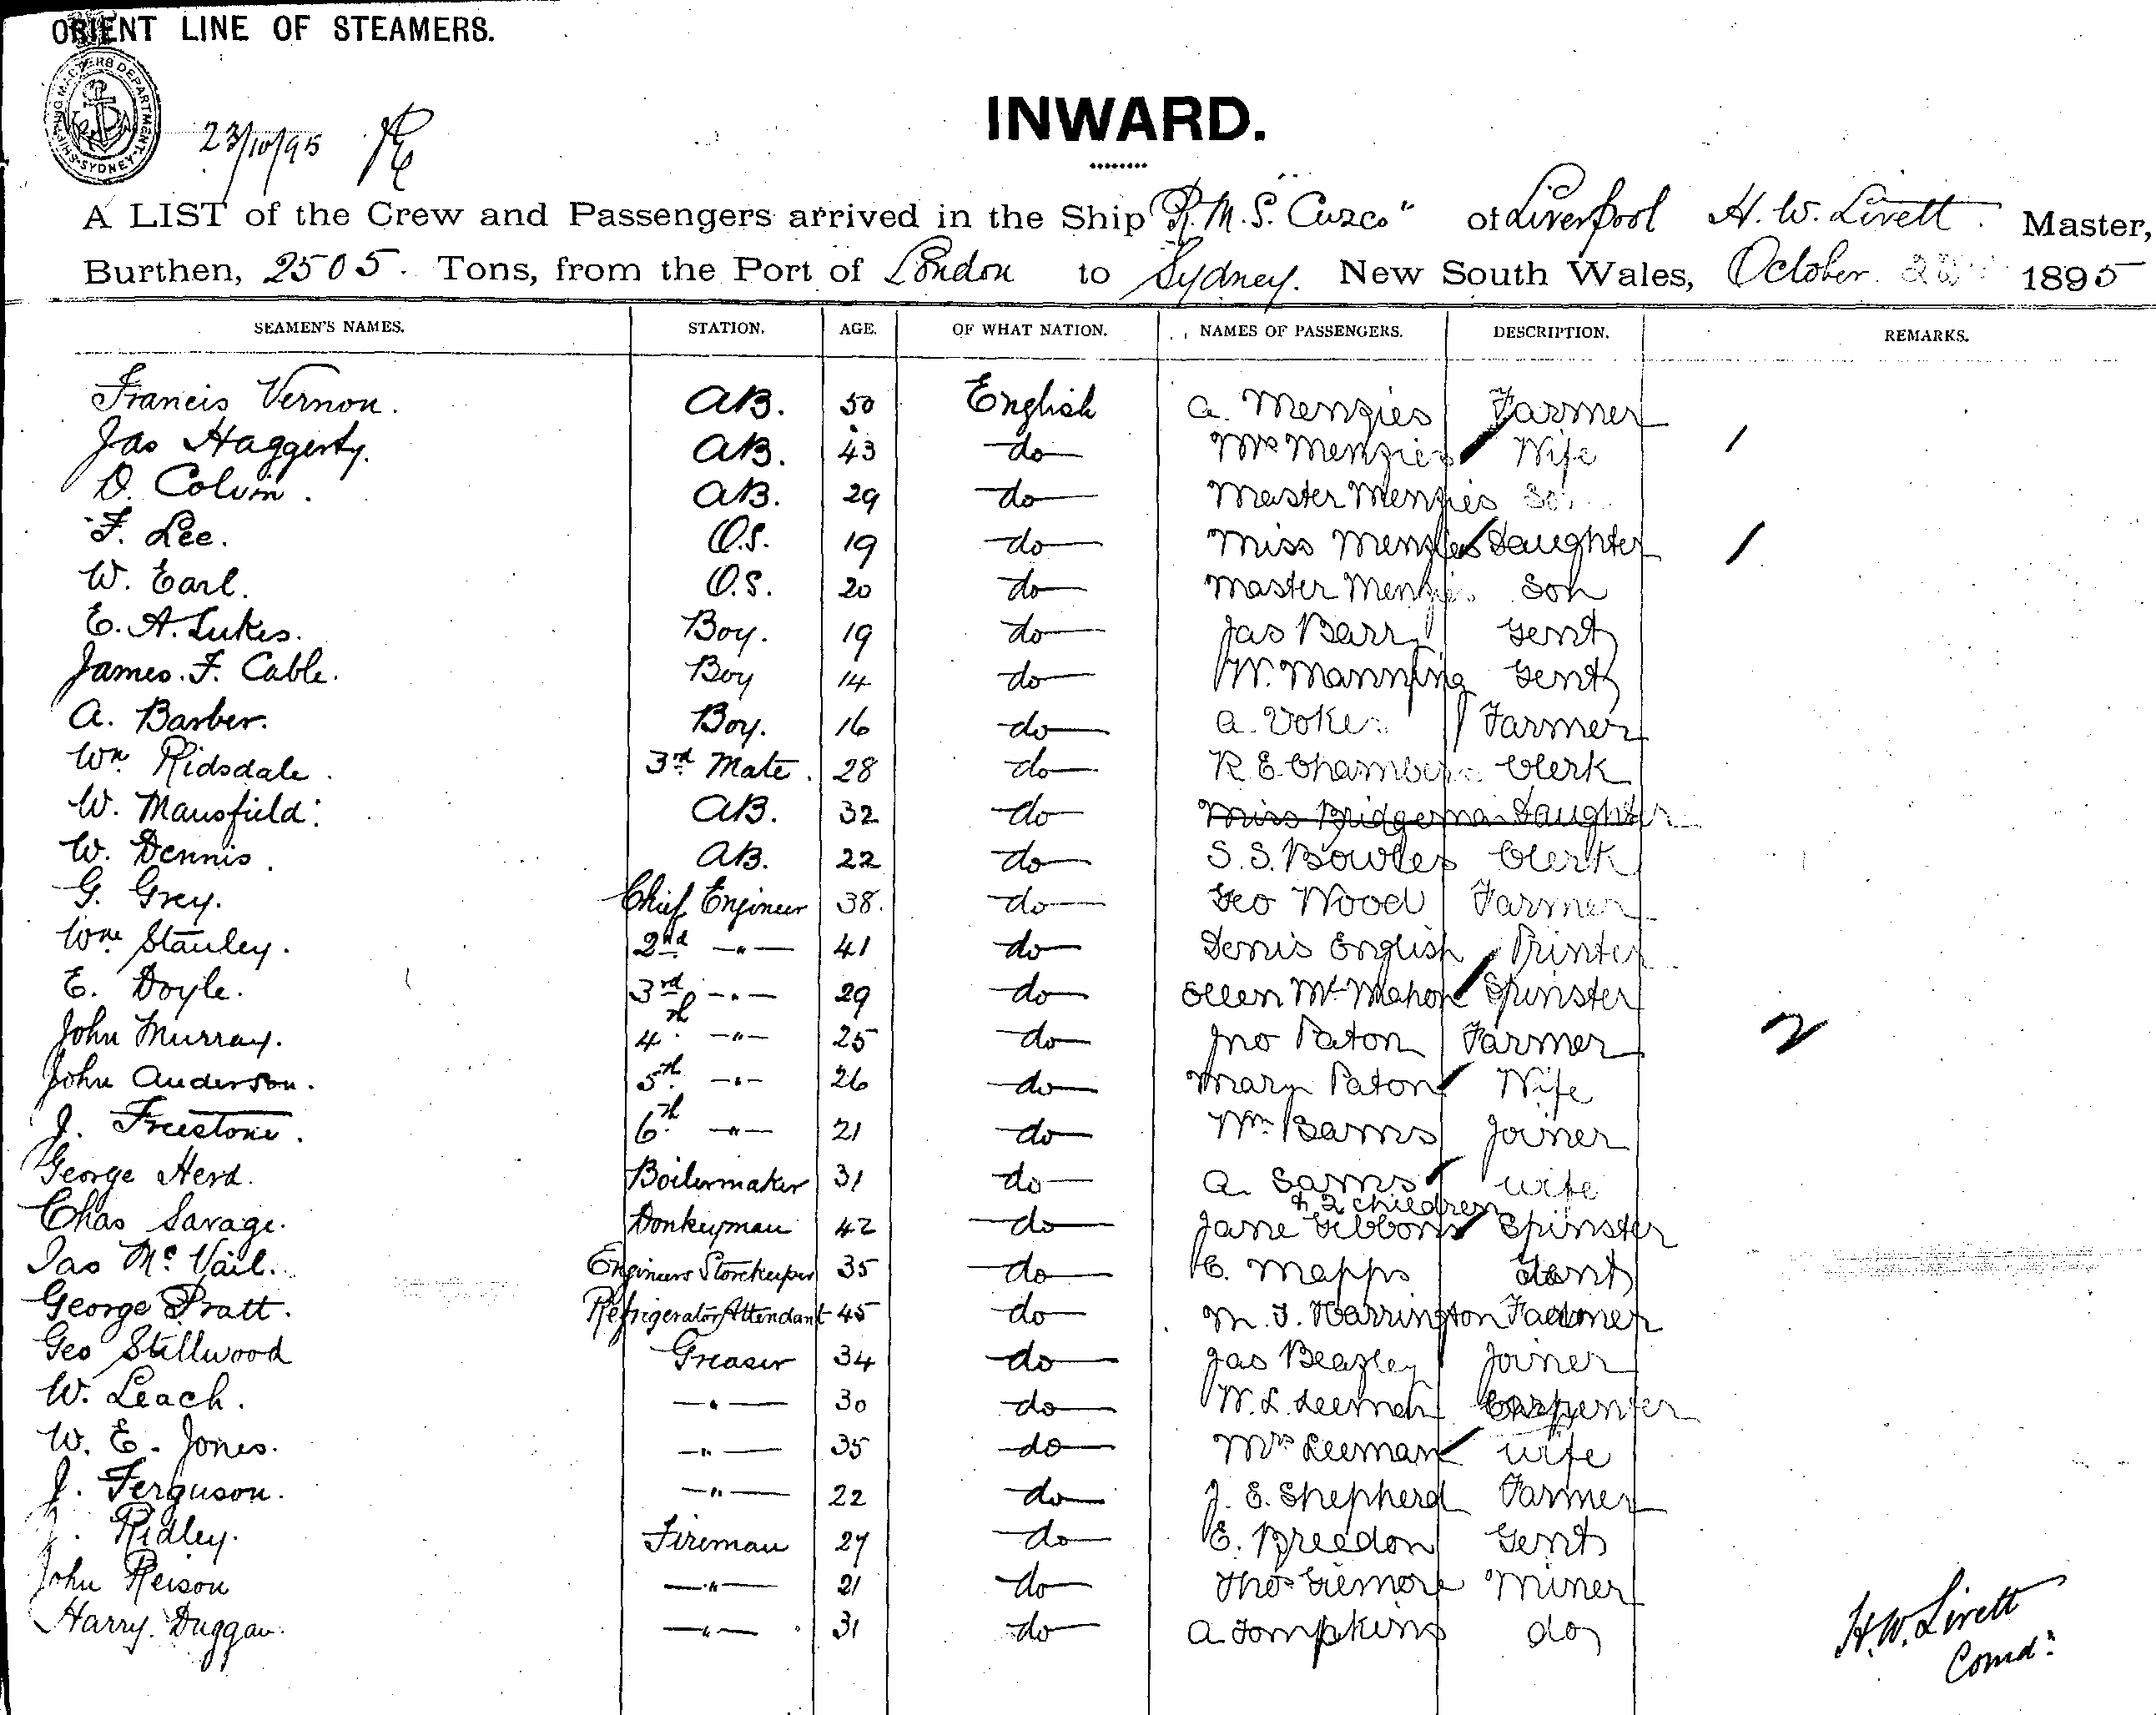 ORIENT LINE OF STEAMERS.
SHIPPING MASTERS DEPARTMENT SYDNEY
23/10/95
INWARD.
A LIST of the Crew and Passengers arrived in the Ship "R.M.S. Cuzco" of Liverpool H. W. Livett. Master,
Burthen, 2505. Tons, from the Port of London to Sydney. New South Wales, October 1895
SEAMEN'S NAMES. STATION. AGE. OF WHAT NATION. NAMES OF PASSENGERS. DESCRIPTION. REMARKS.
Francis Vernon. AB. 50 English A. Menzies Farmer
Jas Haggerty. AB. 43 do Mrs Menzies Wife /
D. Colvin. AB. 29 do Master Menzies
F. Lee. O.S. 19 do Miss Menzies Daughter /
W. Earl. O.S. 20 do Master Menzies Son
E. A. Lukes. Boy. 19 do Jas Barr Gent
James. F. Cable. Boy 14 do W. Manning Gent
A. Barber. Boy. 16 do A. Farmer
Wm Ridsdale. 3rd Mate. 28 do R E Chambers Clerk
W. Mansfield. AB. 32 do Miss Bridgeman Daughter
W. Dennis. AB. 22 do S. S. Bowles Clerk
G. Grey. Chief Engineer 38. do Geo Wood Farmer
Wm Stanley. 2nd —"— 41 do Denis English Printer
E. Doyle. 3rd —"— 29 do Ellen McMahon Spinster
John Murray. 4th —"— 25 do Jno Paton Farmer 2
John Anderson. 5th —"— 26 do Mary Paton Wife
J. Freestone. 6th —"— 21 do Wm Joiner
George Herd. Boilermaker 31 do A. wife
& 2 children
Chas Savage. Donkeyman 42 do Jane Gibbons Spinster
Jas McVail. Engineers Storekeeper 35 do C. Mapps Gent
George Pratt. Refrigerator Attendant 45 do M. J. Harrington Farmer
Geo Stillwood Greaser 34 do Jas Beazley Joiner
W. Leach. —"— 30 do W. L. Leeman Carpenter
W. E. Jones. —"— 35 do Mrs Leeman wife
J. Ferguson. —"— 22 do J. E. Shepherd Farmer
Ridley. Fireman 27 do E. Breedon Gent
John Reison —"— 21 do Thos Gilmore Miner
Harry Duggan. —"— 31 do A Tompkins do
H. W. Livett
Comdr